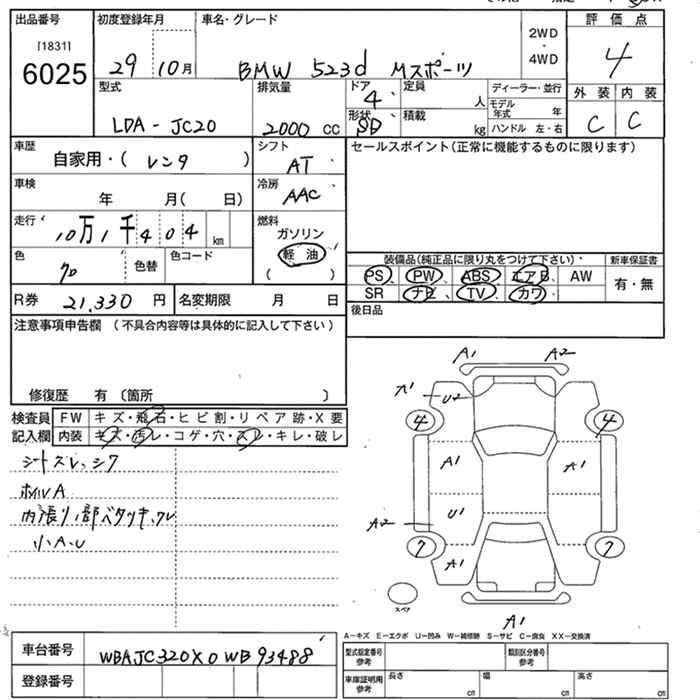 出品番号 初度登録年月 車名・グレード 評価点
[1831]
6025 29 10月 BMW 523d Mスポーツ 2WD ・ 4WD 4
型式 排気量 ドア 定員 ディーラー・並行 外装 内装
4 人 モデル年式 年
LDA-JC20 2000 cc 形状 SD 積載 kg ハンドル 左・右 C C
車歴 シフト セールスポイント(正常に機能するものに限ります)
自家用・( レンタ ) AT
車検 冷房
年 月( 日) AAC
走行 燃料
10万1千404 km ガソリン
色 色替 色コード 軽油 装備品(純正品に限り丸をつけて下さい) 新車保証書
クロ ( ) PS PW ABS エアB AW 有・無
R券 21,330 円 名変期限 月 日 SR ナビ TV カワ
注意事項申告欄 (不具合内容等は具体的に記入して下さい) 後日品
修復歴 有 〔箇所 〕
検査員 FW キズ・飛石・ヒビ割・リペア跡・X要
記入欄 内装 キズ・汚レ・コゲ・穴・スレ・キレ・破レ
シートスレ、シワ
ホイルA
内張り1部ベタツキ、ワレ
小A、U
A1 A2
A1 U2
4 4
A1 A1
A2 U1
7 7
A1
スペア
A1
A－キズ E－エクボ U－凹み W－補修跡 S－サビ C－腐食 XX－交換済
車台番号 WBAJC320X0WB93488 型式指定番号 参考 類別区分番号 参考
登録番号 車庫証明用 参考 長さ cm 幅 cm 高さ cm